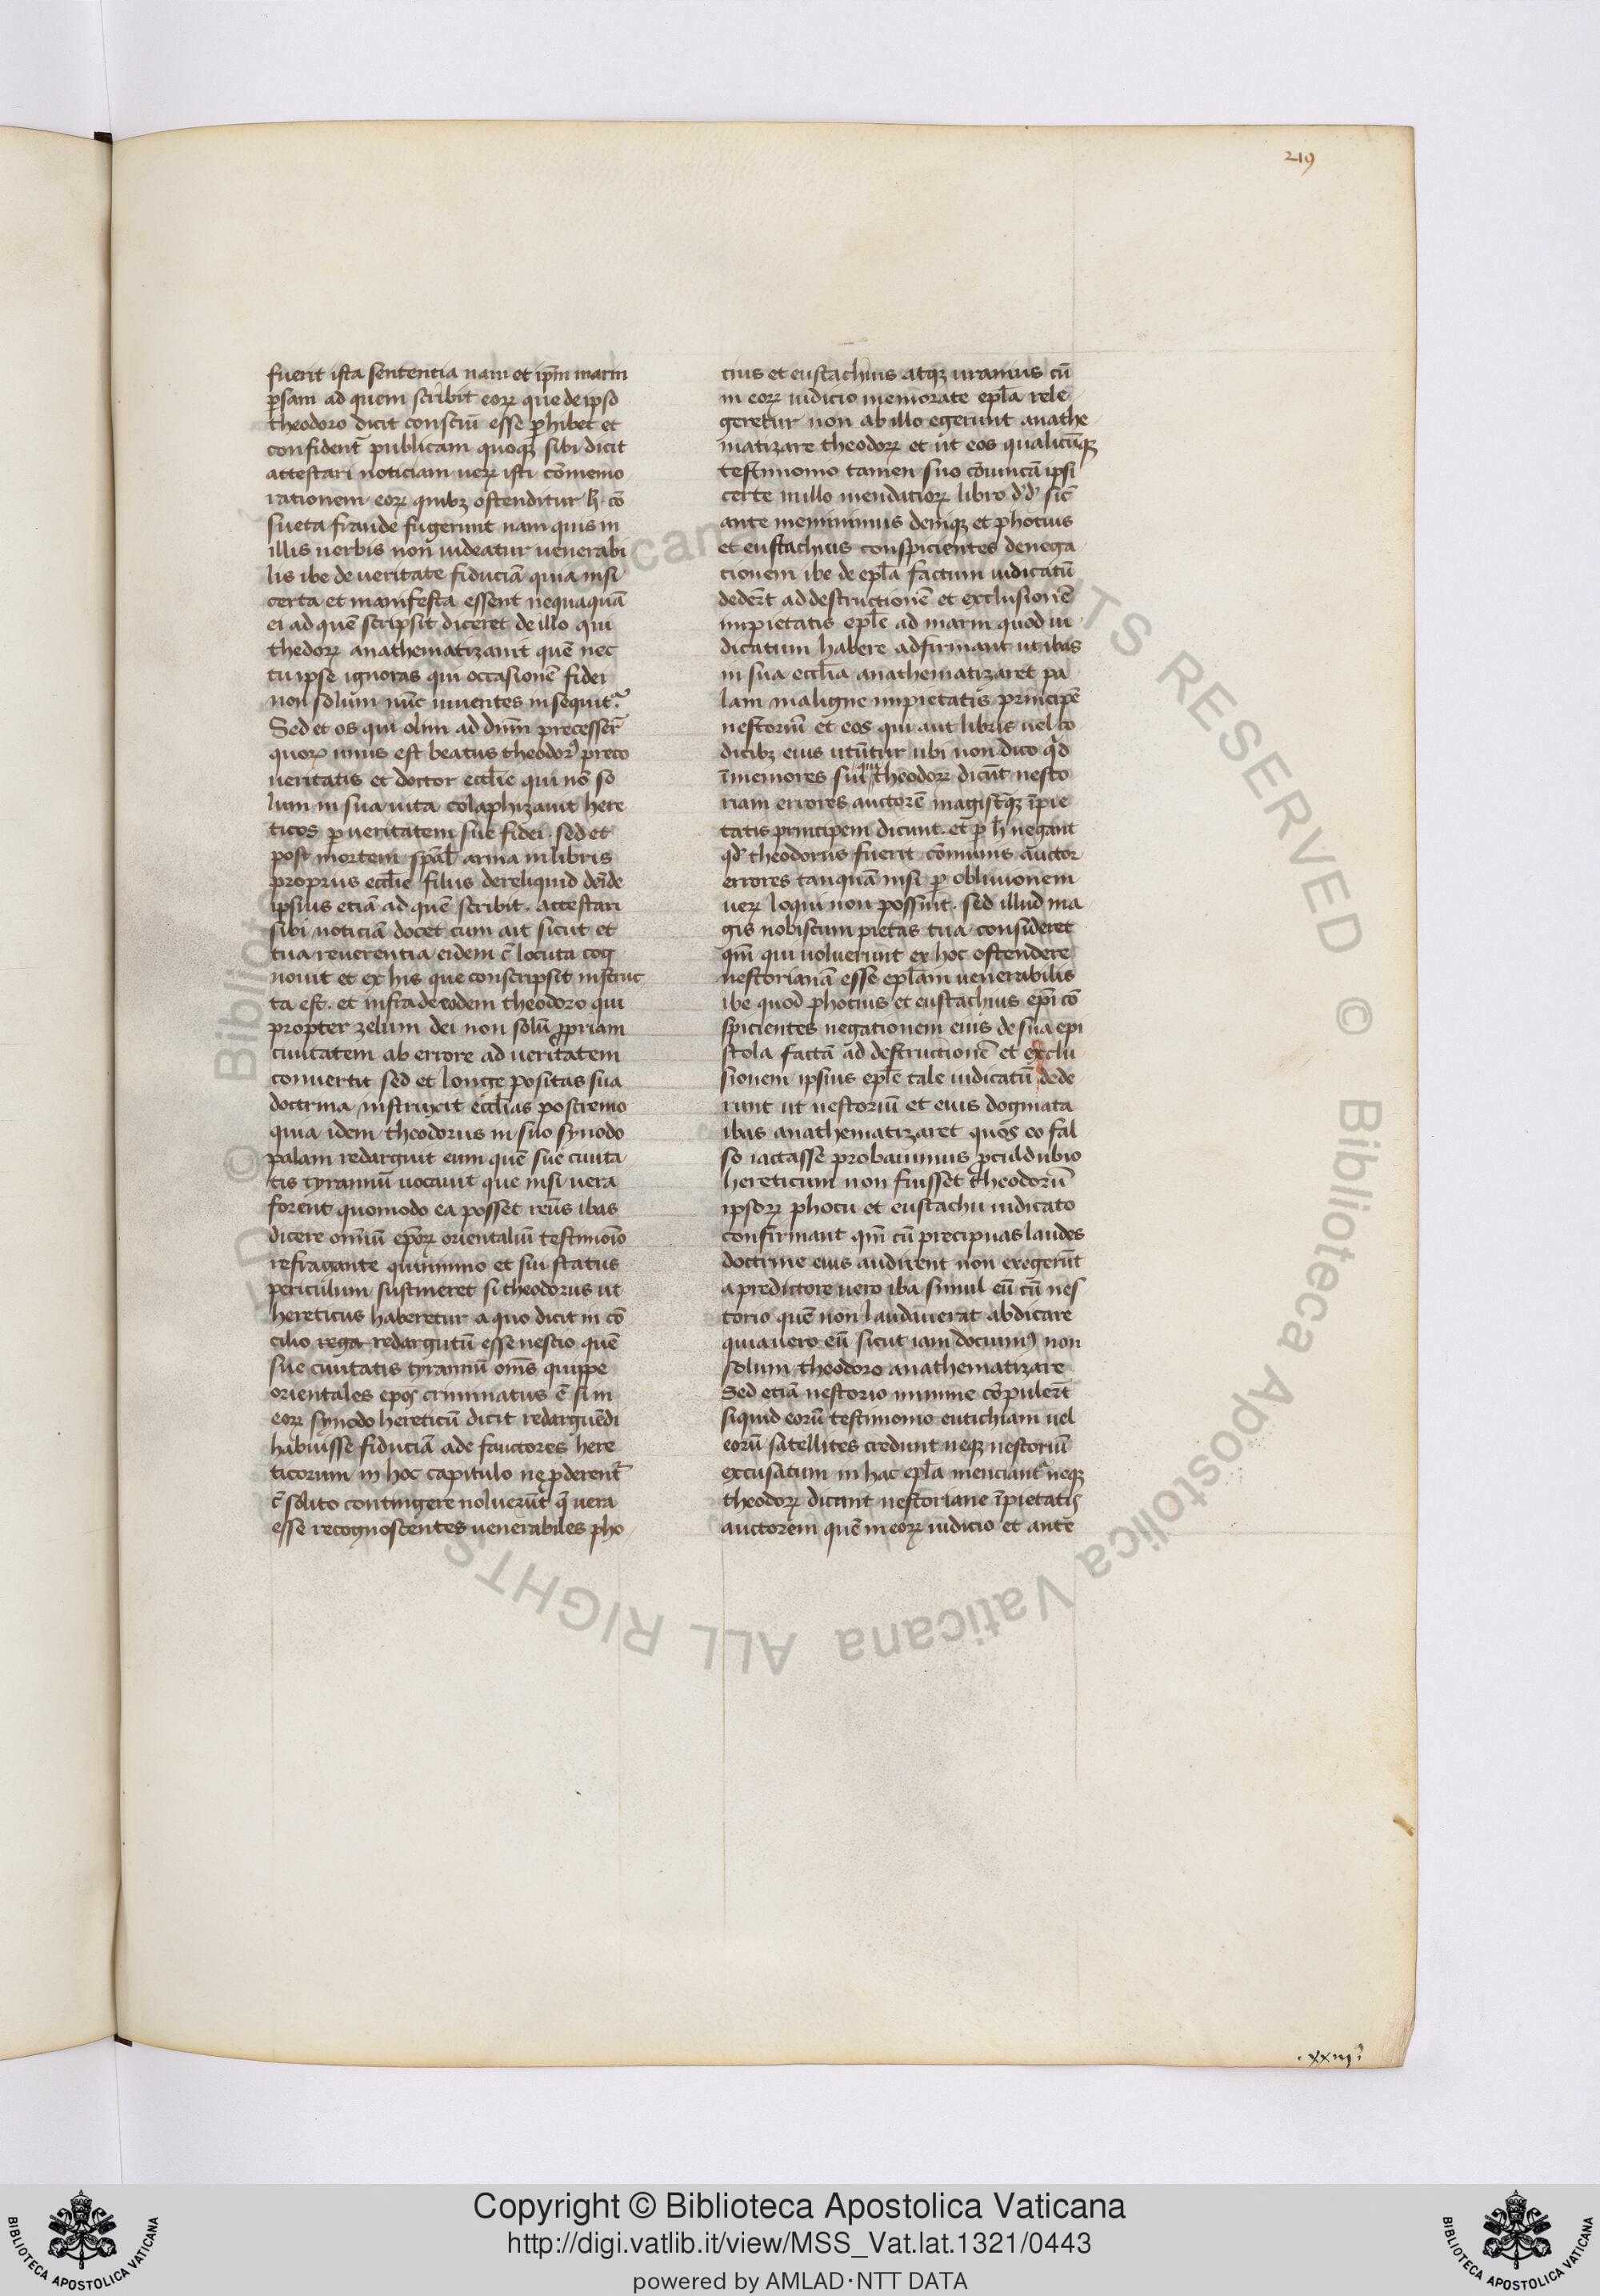 219
fuerit ista sententia nam et ip̄m marin
ꝑsam ad quem scribit eoꝝ que de ipso
theodoro dicit consciū esse ꝑhibet et
confident̄ publicam quoqꝫ sibi dicit
attestari noticiam ueꝝ isti cōmemo
rationem eoꝝ quibꝫ ostenditur h̄ · cō
sueta fraude fugerunt nam quis in
illis uerbis non uideatur uenerabi
lis ibe de ueritate fiduciā quia nisi
certa et manifesta essent nequaquā
ei ad quē scripsit diceret de illo qui
thedoꝝ anathematizauit quē nec
tu ipse ignoras qui occasionē fidei
non solum nūc uiuentes insequit᷑
Sed et os qui olim ad dnm̄ precesser̄
quoꝝ unus est beatus theodorꝰ preco
ueritatis et doctor eccl̄ie qui nō so
lum in sua uita colaphizauit here
ticos ꝑ ueritatem sue fidei · sed et
post mortem sp̄al̄ arma in libris
propriis eccl̄ie filiis dereliquid deīde
ipsius etiā ad quē scribit · attestari
sibi noticiā docet cum ait sicut et
tua reuerentia eidem c̄ locuta cog
nouit et ex his que conscripsit instruc
ta est · et infra de eodem theodoro qui
propter zelum dei non solū ꝓpriam
ciuitatem ab errore ad ueritatem
conuertit sed et longe positas sua
doctrina instruxit eccl̄ias postremo
quia idem theodorus in suo synodo
palam redarguit eum quē sue ciuita
tis tyrannū uocauit que nisi uera
forent quomodo ea posset reūs ibas
dicere omīū epōꝝ orientaliū testimōio
refragante quinimmo et sui status
periculum sustineret si theodorus ut
hereticus haberetur a quo dicit in cō
cilio rega redargutū esse nescio quē
sue ciuitatis tyrannū om̄s quippe
orientales epōs criminatus ē si in
eoꝝ synodo hereticū dicit redarguēdi
habuisse fiduciā ade fauctores here
ticorum in hoc capitulo ne ꝑderent᷑
c̄ solito contingere noluerūt q̄ uera
esse recognoscentes uenerabiles pho
cius et eustachius atqꝫ uranius cū
in eoꝝ iudicio memorate epl̄a rele
geretur non ab illo egerunt anathe
matizare theodoꝝ et ut eos qualicūqꝫ
testimonio tamen suo cōuincā ipsi
certe nullo mendacioꝝ libro d̄d̄ sic̄
ante meminimus deniqꝫ et photius
et eustachius conspicientes denega
cionem ibe de epl̄a factum iudicatū
deder̄t ad destructionē et exclusionē
impietatis epl̄e ad marin quod iu
dicatum habere adfirmant ut ibas
in sua eccl̄ia anathematizaret pa
lam maligne impietatis principē
nestoriū et eos qui aut libris uel co
dicibꝫ eius utūtur ubi non dico qd̄
īmemores sui theodoꝝ dicūt nesto
riam errores auctorē magistqꝫ īpie
tatis principem dicunt · et ꝑ h̄ negant
qd̄ theodorus fuerit cōmunis auctor
errores tanquā nisi ꝑ obliuionem
ueꝝ loqui non possint · sed illud ma
gis nobiscum pietas tua consideret
qm̄ qui uoluerunt ex hoc ostendere
nestorianā esse epl̄am uenerabilis
ibe quod photius et eustachius ep̄i cō
spicientes negationem eius de sua epi
stola factā ad destructionē et exclu
sionem ipsius epl̄e tale iudicatū dede
runt ut nestoriū et eius dogmata
ibas anathematizaret quos eo fal
so iactasse probauimus ꝓculdubio
hereticum non fuisset theodorū
ipsoꝝ photii et eustachii iudicato
confirmant qm̄ cū precipuas laudes
doctrine eius audirent non exegerūt
a predictore uero iba simul eū cū nes
torio quē non laudauerat abdicare
quia uero eū sicut iam docuimꝰ non
solum theodoro anathematizare
Sed etiā nestorio minime cōpuler̄t
siquid eorū testimonio eutichiani uel
eorū satellites credunt neqꝫ nestoriū
excusatum in hac epl̄a menciant᷑ neqꝫ
theodoꝝ dicant nestoriane īpietatis
auctorem quē in eoꝝ iudicio et ante
Copyright © Biblioteca Apostolica Vaticana
http://digi.vatlib.it/view/MSS_Vat.lat.1321/0443
powered by AMLAD·NTT DATA
BIBLIOTECA APOSTOLICA VATICANA
BIBLIOTECA APOSTOLICA VATICANA